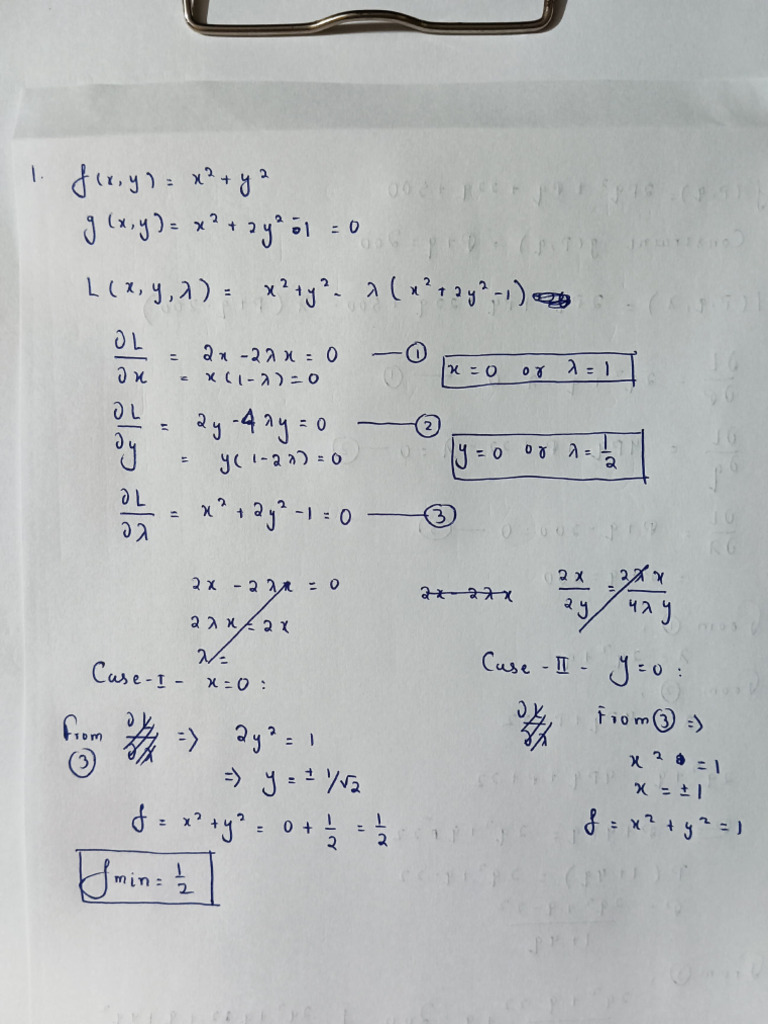 1. f(x,y) = x² + y²
g(x,y) = x² + 2y² - 1 = 0
L(x, y, λ) = x² + y² - λ(x² + 2y² - 1)
∂L/∂x = 2x - 2λx = 0 — ①
= x(1-λ) = 0
x = 0 or λ = 1
∂L/∂y = 2y - 4λy = 0 — ②
= y(1-2λ) = 0
y = 0 or λ = 1/2
∂L/∂λ = x² + 2y² - 1 = 0 — ③
2x - 2λx = 0
2λx = 2x
λ =
2x - 2λx
2x/2y = 2λx/4λy
Case - I - x = 0 :
From ③ ∂L/∂λ => 2y² = 1
=> y = ± 1/√2
f = x² + y² = 0 + 1/2 = 1/2
f min = 1/2
Case - II - y = 0 :
∂L/∂λ From ③ =>
x² = 1
x = ±1
f = x² + y² = 1